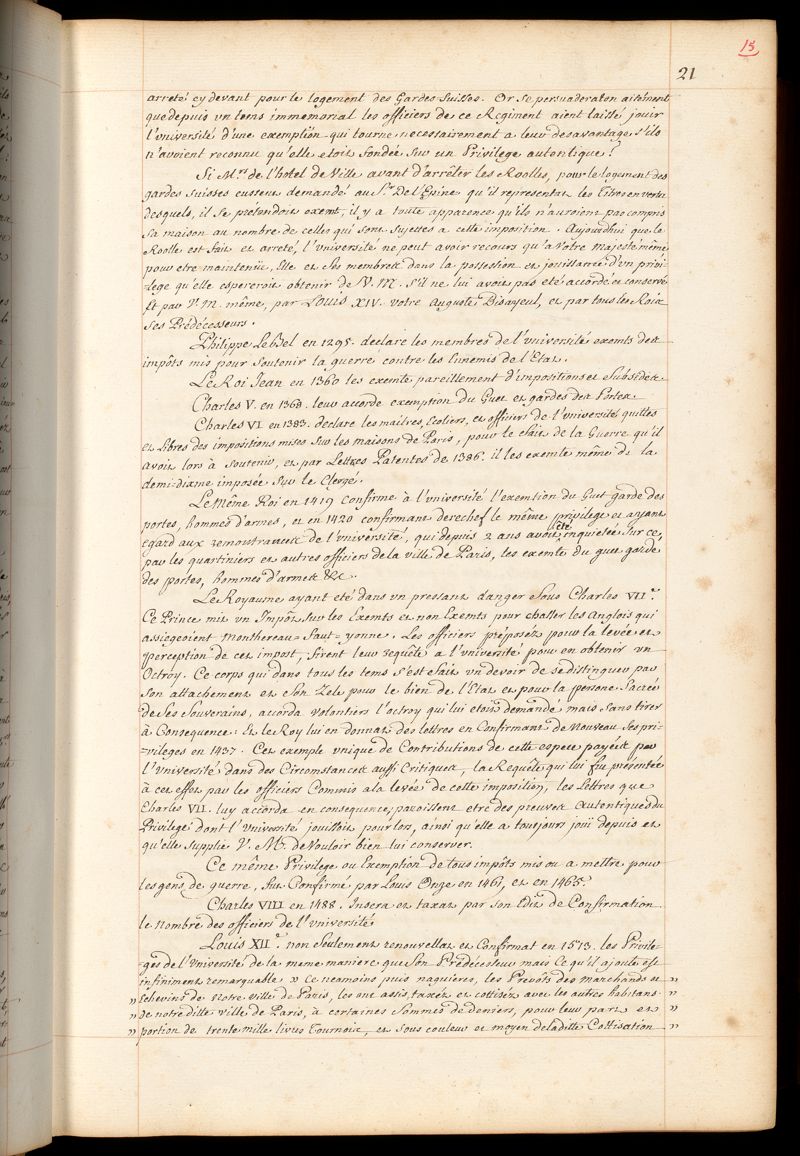 15
21
arreté cy devant pour le logement des Gardes Suisses. Or se persuaderaton aisément
que depuis un tems immemorial les officiers de ce Regiment aient laissé jouir
l'université d'une exemption qui tourne necessairement a leur desavantage s'ils
n'avoient reconnu qu'elle etoit fondée sur un Privilege autentique?
Si M.rs de l'hotel de Ville avant d'arrêter les Roolles, pour le logement des
gardes suisses eussent demandé au S.r De l'Epine qu'il representat les titres en vertu
desquels, il se prétendoit exemt, il y a toute apparence qu'ils n'auroient pas compris
sa maison au nombre de celles qui sont sujettes a cette imposition. Aujourdhui que le
Roolle est fait et arreté, l'université ne peut avoir recours qu'a Votre Majesté même
pour etre maintenüe, Elle et ses membres dans la possession et jouissance d'un privi-
lege qu'elle espereroit obtenir de V. M. s'il ne lui avoit pas eté accordé et conservé
Et par V. M. même, par Louis XIV. votre Auguste Bisayeul, et par tous les Roix
ses Prédécesseurs.
Philippe Le Bel en 1295. declare les membres de l'université exemts des
impôts mis pour soutenir la guerre contre les Ennemis de l'Etat.
Le Roi Jean en 1360 les exemte pareillement d'impositions et subsides.
Charles V. en 1368. leur accorde exemption du Guet et gardes des Portes.
Charles VI en 1383. declare les maitres, Ecoliers, et officiers de l'université quittes
et Libres des impositions mises sur les maisons de Paris, pour le fait de la Guerre qu'il
avoit lors à soutenir, et par Lettres Patentes de 1386. il les exemte même de la
demi-dixme imposée sur le Clergé.
Le Même Roi en 1419 confirme à l'université l'exemtion du Guet garde des
portes, hommes d'armes, et en 1420 confirmant derechef le même privilege et ayant
egard aux remontrances de l'université, qui depuis 2 ans avoit été inquietée sur ce,
par les quartiniers et autres officiers de la ville de Paris, les exemte du guet garde
des portes, hommes d'armes &c.
Le Royaume ayant eté dans un pressant danger sous Charles VII.e
Ce Prince mit un Impôt sur les Exemts et non Exemts pour chasser les Anglois qui
assiegeoient Monthereau-Faut-yonne. Les officiers préposés pour la levée et
perception de cet impost, firent leur requête a l'université pour en obtenir un
Octroy. Ce corps qui dans tous les tems s'est fait un devoir de se distinguer par
son attachement et son Zele pour le bien de l'Etat et pour la persone Sacrée
de ses Souverains, accorda volontiers l'octroy qui lui etoit demandé mais sans tirer
à Consequence: Et le Roy lui en donnat des lettres en Confirmant de Nouveau ses pri-
-vileges en 1437. Cet exemple unique de Contributions de cette espece payées par
l'Université dans des Circonstances aussi Critiques, la Requête qui lui fut présentée
à cet effet par les officiers Commis a la levée de cette imposition, les Lettres que
Charles VII. luy accorda en consequence, paroissent etre des preuves Autentiques du
Privilege dont l'Université jouissoit pour lors, ainsi qu'elle a toujours joüi depuis et
qu'elle supplie V. M. de Vouloir bien lui conserver.
Ce même Privilege ou Exemption de tous impôts mis ou a mettre pour
les gens de guerre, fut Confirmé par Louis Onze en 1461, et en 1465.
Charles VIII en 1488. Insera et taxat par son Edit de Confirmation
le nombre des officiers de l'université
Louis XII.e non seulement renouvellat et Confirmat en 1513. les Privile-
-ges de l'Université de la meme maniere que son Prédécesseur mais ce qu'il ajoute est
infiniment remarquable » Ce neamoins puis naguieres, les Prevôts des Marchands et »
» Echevins de notre ville de Paris, les ont assis, taxéz et cottiséz avec les autres habitans »
» de notre ditte ville de Paris, à certaines sommes de deniers, pour leur part et »
» portion de trente mille livres Tournois, et sous couleur et moyen de laditte Cottisation »